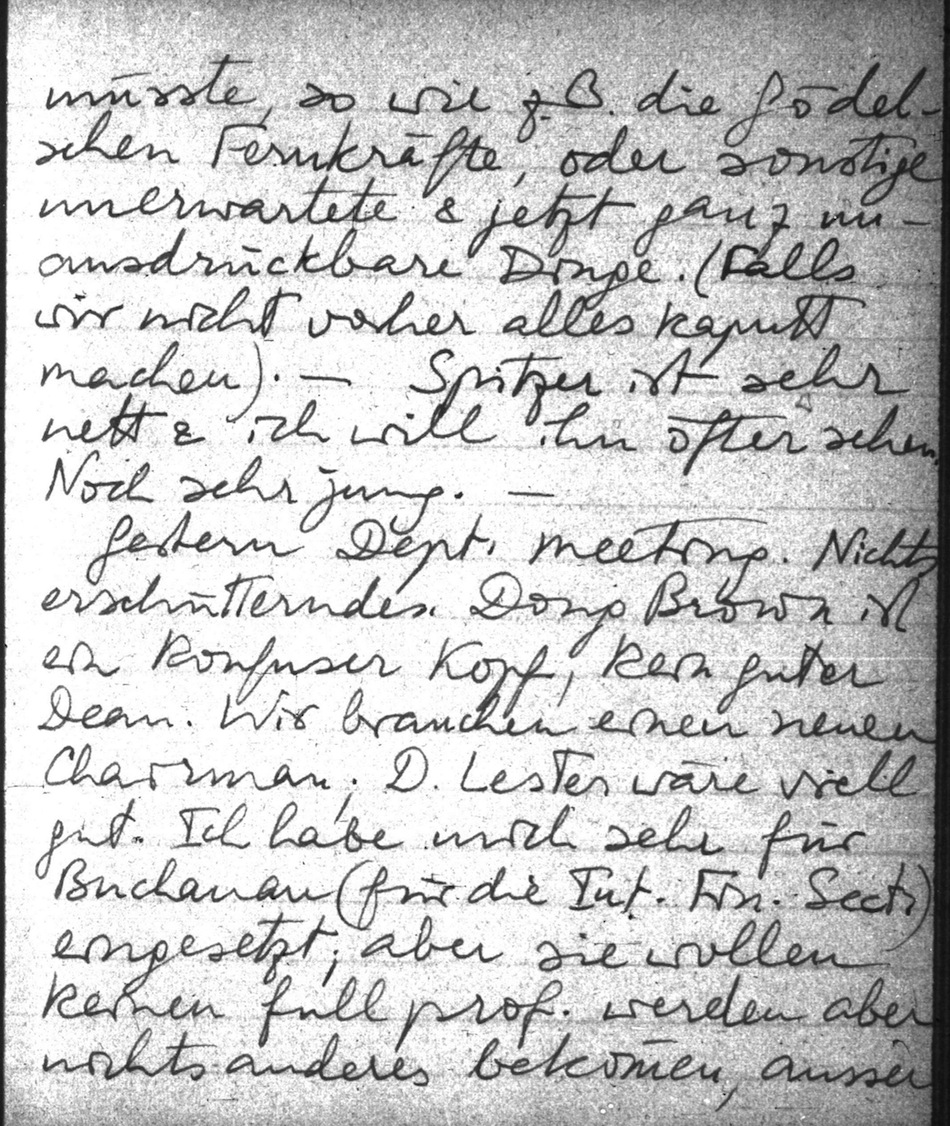 müsste, so wie z.B. die Gödel-
schen Fernkräfte, oder sonstige
unerwartete & jetzt ganz un-
ausdrückbare Dinge. (Falls
wir nicht vorher alles kaputt
machen). — Spitzer ist sehr
nett & ich will ihn öfter sehen.
Noch sehr jung. —
Gestern Dept. meeting. Nichts
erschütterndes. Doug Brown ist
ein konfuser Kopf, kein guter
Dean. Wir brauchen einen neuen
Chairman. D. Lester wäre viell
gut. Ich habe mich sehr für
Buchanan (für die Int. Fin. Sect.)
eingesetzt; aber sie wollen
keinen full prof. werden aber
nichts anderes bekom̄en, ausser